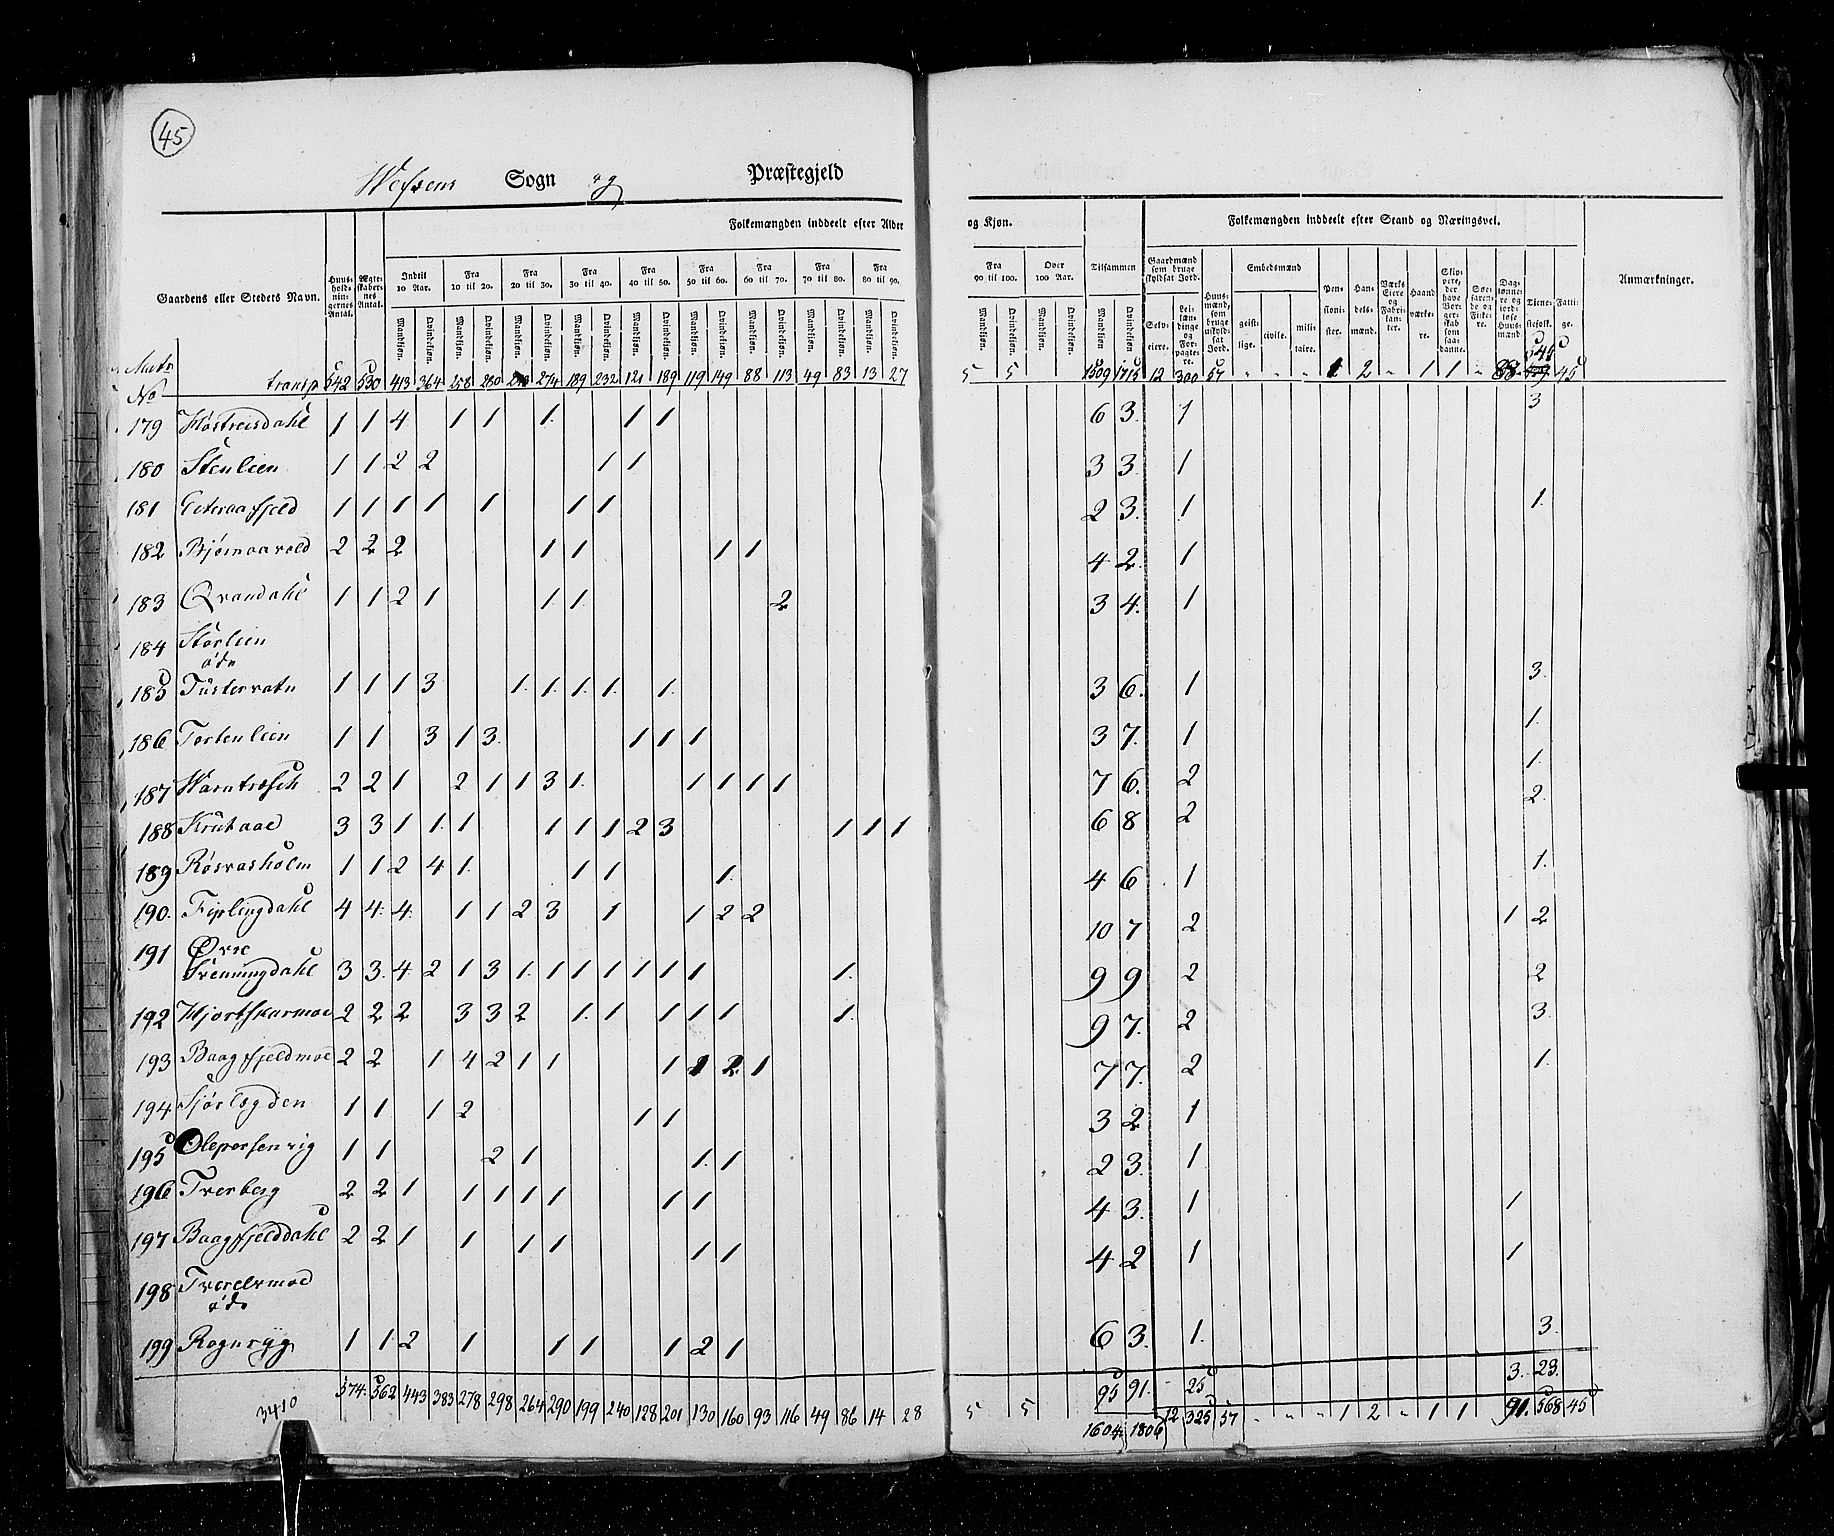 45
Wefsens Sogn og Præstegjeld
Folkemængden inddeelt efter Alder og Kjøn. Folkemængden inddeelt efter Stand og Næringsvei.
Gaardens eller Stedets Navn. Huusholdningernes Antal. Ægteskabernes Antal. Indtil 10 Aar. Fra 10 til 20. Fra 20 til 30. Fra 30 til 40. Fra 40 til 50. Fra 50 til 60. Fra 60 til 70. Fra 70 til 80. Fra 80 til 90. Fra 90 til 100. Over 100 Aar. Tilsammen Gaardmænd som bruge skyldsat Jord. Huusmænd, som bruge uskyldsat Jord. Embedsmænd Pensionister. Handelsmænd. Værks Eiere og Fabrikanter. Haandværkere. Skippere, der have Borgerskab som saadanne. Søefarende og Fiskere. Daglønnere og jordløse Huusmænd Tjenestefolk. Fattige. Anmærkninger.
Mandkjøn. Qvindekjøn. Selveiere. Leilændinge og Forpagtere. geistlige. civile. militaire.
Matr No transp 542 530 413 364 258 280 274 189 232 121 189 119 149 88 113 49 83 13 27 5 5 1509 1715 12 300 57 " " " 1 2 " 1 1 " 88 545 45
179 1 1 4 1 1 1 1 1 6 3. 1 3
180 Stenlien 1 1 2 2 1 1 3 3. 1
181 1 1 1 1 1 1 1 2 3. 1 1.
182 Bjørnaavold 2 2 2 1 1 1 1 4 2. 1
183 Qvandahl 1 1 2 1 1 1 2 3 4. 1
184 Storlien
øde
185 Tustervatn 1 1 1 3 1. 1. 1. 1. 1. 3 6. 1 3.
186 Tortenlien 1 1 3 1 3. 1 1 1 3 7. 1 1.
187 2 2 1 2 1 1 3 1. 1 1 1 1 7 6. 2 1.
188 Krutaae 3 3 1 1. 1 1 1 1 2 3 1 1 1 6 8 2 2.
189 Røsvasholm 1 1 2 4 1. 1 1 1. 4 6 1 1.
190. Fiplingdahl 4 4. 4. 1 1 2 3 1 1 2 2 10 7 2 1 2
191 Øvre
Svenningdahl 3 3. 4 2 1 3 1. 1 1 1 1 1 1 1. 9 9 2 2
192 Hjortskarmoe 2 2 2 3 3 2 1. 1 1 1 1 1. 9 7. 2 3
193 Baagfjeldmoe 2 2 1 4 2 1 1 1 2 1 7 7. 2 1.
194 1 1 1 2 1 1 3 2 1
195 1 1 2 1 1. 1 2 3. 1
196 Tverberg 2 2 1 1 1 1 1 1 1 4 3. 1 1
197 Baagfjelddahl 2 2 1 1 1 1 1 1 4 2 1 1
198 Tverelvmoe
øde
199 Rognryg 1 1. 2 1 1 1 1 2 1 6 3. 1. 3.
95 91. 25 3. 23.
3410 574. 562 443 383 278 298 264 290 199 240 128 201 130 160 93 116 49 86 14 28 5 5 1604 1806 12 325 57 " " " 1 2 " 1 1 91. 568 45